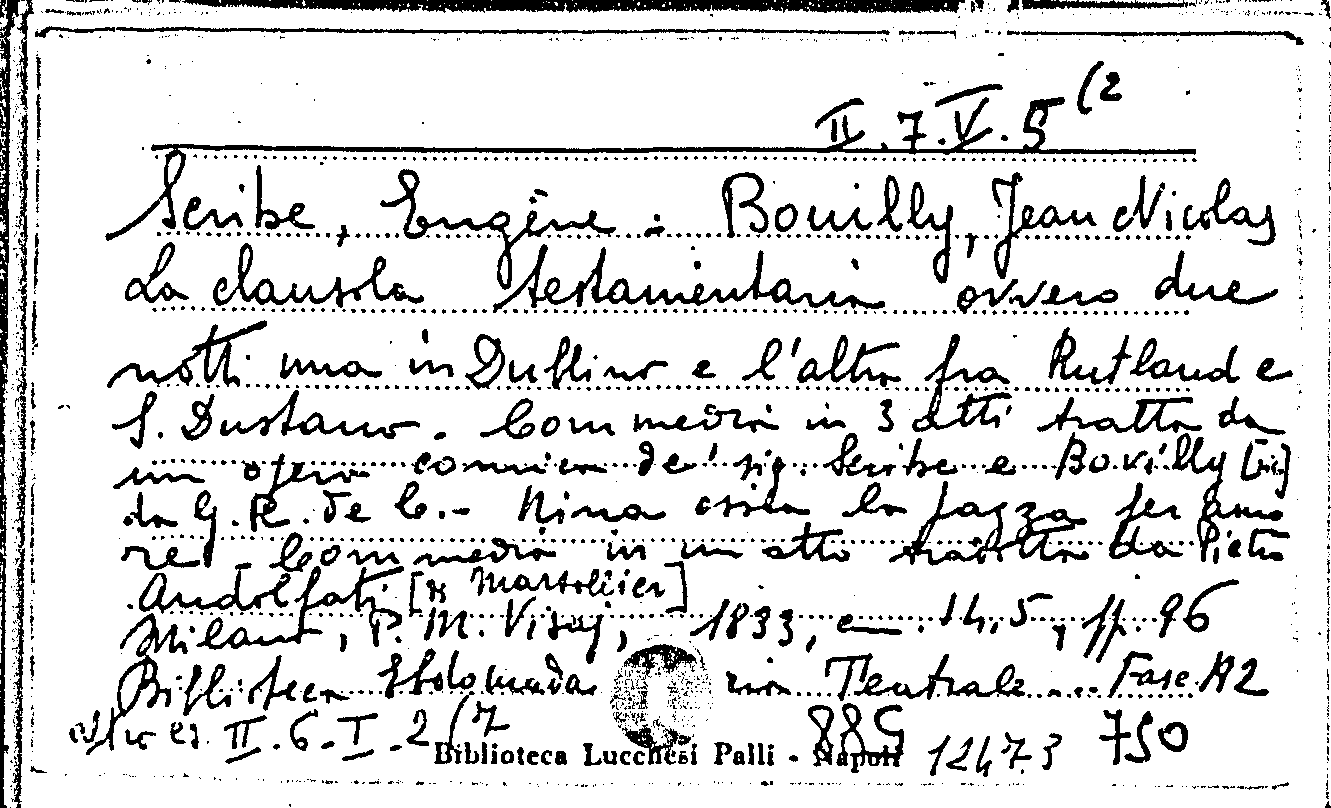 II.7.V.5 (2
Scribe, Eugène : Bouilly, Jean Nicolas
La clausola testamentaria ovvero due
notti una in Dublino e l'altra fra Rutland e
S. Dustano. Commedia in 3 atti tratta da
un opera comica de' sig. Scribe e Bovilly [sic]
da G. R. de C. - Nina ossia la pazza per amo
re. Commedia in un atto tradotta da Pietro
Andolfati [Marsollier]
Milano, P. M. Visaj, 1833, cm. 14,5, pp. 96
Biblioteca Ebdomada ria Teatrale... Fasc.
altro es. II.6.I.2 (7
Biblioteca Lucchesi Palli - Napoli 12473 750